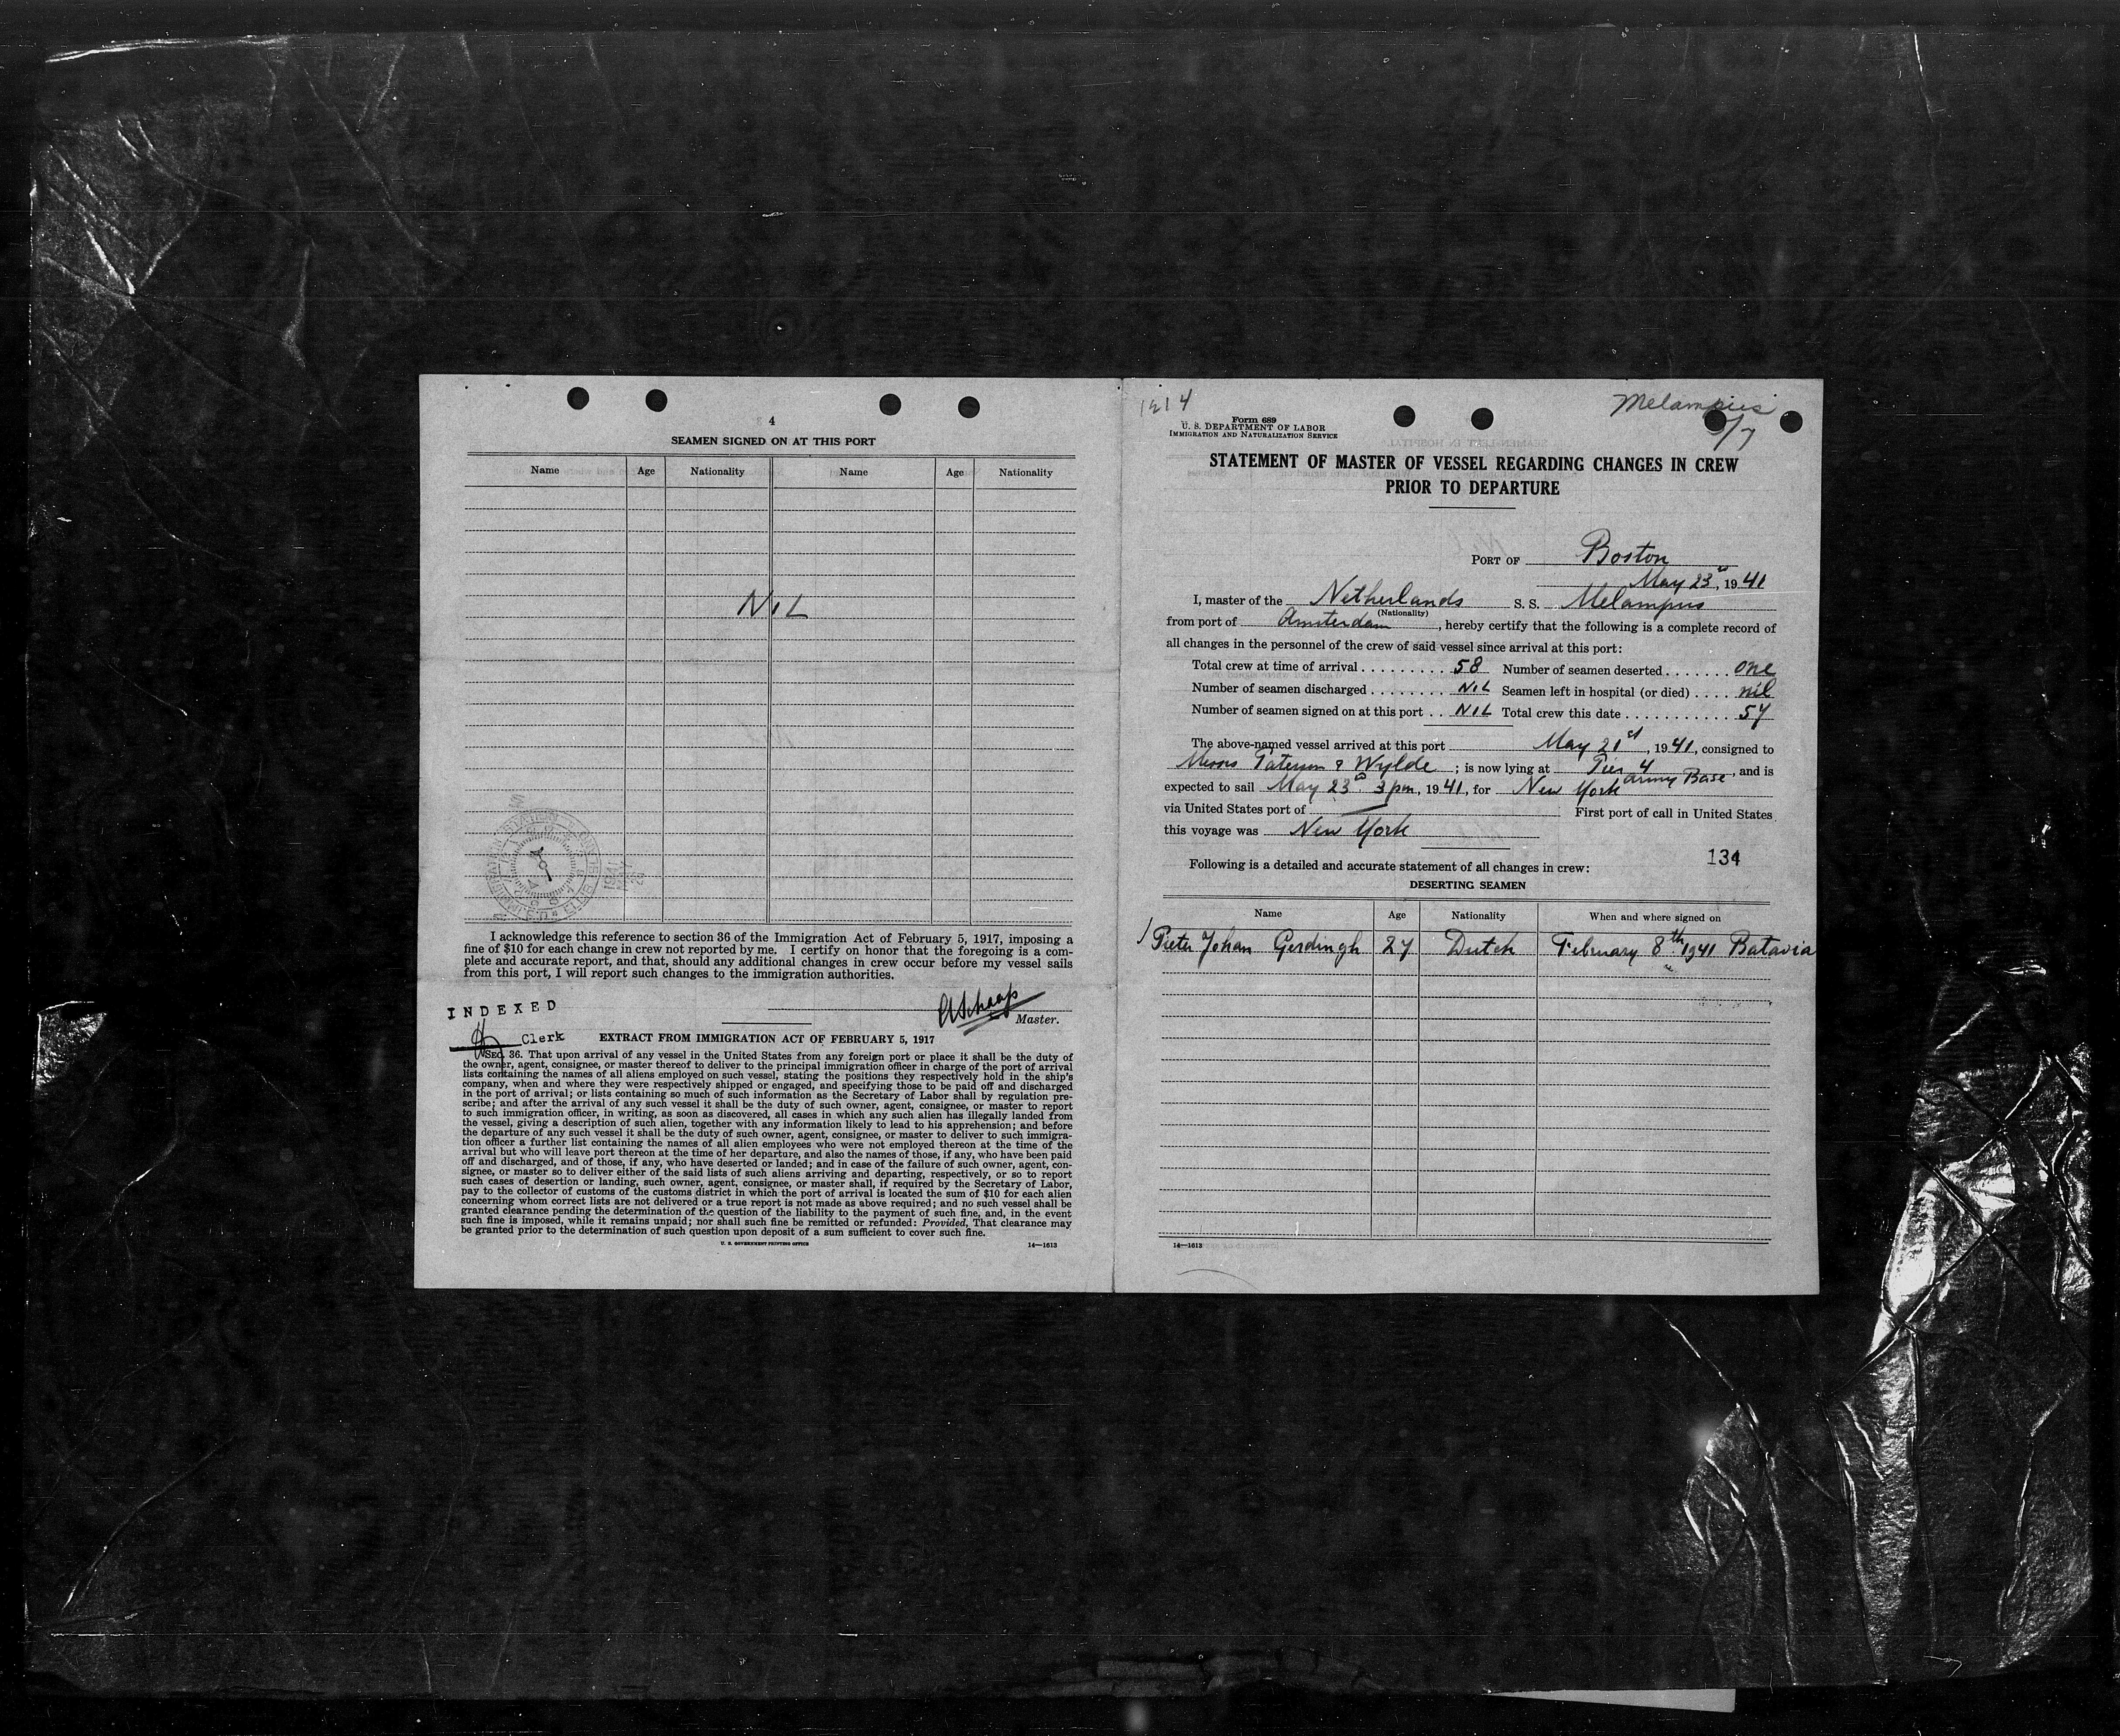 4
SEAMEN SIGNED ON AT THIS PORT
Name Age Nationality Name Age Nationality
NIL
I acknowledge this reference to section 36 of the Immigration Act of February 5, 1917, imposing a
fine of $10 for each change in crew not reported by me. I certify on honor that the foregoing is a com-
plete and accurate report, and that, should any additional changes in crew occur before my vessel sails
from this port, I will report such changes to the immigration authorities.
INDEXED
ASchaap
Master.
Clerk
EXTRACT FROM IMMIGRATION ACT OF FEBRUARY 5, 1917
SEC. 36. That upon arrival of any vessel in the United States from any foreign port or place it shall be the duty of
the owner, agent, consignee, or master thereof to deliver to the principal immigration officer in charge of the port of arrival
lists containing the names of all aliens employed on such vessel, stating the positions they respectively hold in the ship's
company, when and where they were respectively shipped or engaged, and specifying those to be paid off and discharged
in the port of arrival; or lists containing so much of such information as the Secretary of Labor shall by regulation pre-
scribe; and after the arrival of any such vessel it shall be the duty of such owner, agent, consignee, or master to report
to such immigration officer, in writing, as soon as discovered, all cases in which any such alien has illegally landed from
the vessel, giving a description of such alien, together with any information likely to lead to his apprehension; and before
the departure of any such vessel it shall be the duty of such owner, agent, consignee, or master to deliver to such immigra-
tion officer a further list containing the names of all alien employees who were not employed thereon at the time of the
arrival but who will leave port thereon at the time of her departure, and also the names of those, if any, who have been paid
off and discharged, and of those, if any, who have deserted or landed; and in case of the failure of such owner, agent, con-
signee, or master so to deliver either of the said lists of such aliens arriving and departing, respectively, or so to report
such cases of desertion or landing, such owner, agent, consignee, or master shall, if required by the Secretary of Labor,
pay to the collector of customs of the customs district in which the port of arrival is located the sum of $10 for each alien
concerning whom correct lists are not delivered or a true report is not made as above required; and no such vessel shall be
granted clearance pending the determination of the question of the liability to the payment of such fine, and, in the event
such fine is imposed, while it remains unpaid; nor shall such fine be remitted or refunded: Provided, That clearance may
be granted prior to the determination of such question upon deposit of a sum sufficient to cover such fine.
U. S. GOVERNMENT PRINTING OFFICE 14—1613
1214
Melampus
5/7
Form 689
U. S. DEPARTMENT OF LABOR
IMMIGRATION AND NATURALIZATION SERVICE
STATEMENT OF MASTER OF VESSEL REGARDING CHANGES IN CREW
PRIOR TO DEPARTURE
PORT OF Boston
May 23d, 1941
I, master of the Netherlands S. S. Melampus
(Nationality)
from port of Amsterdam, hereby certify that the following is a complete record of
all changes in the personnel of the crew of said vessel since arrival at this port:
Total crew at time of arrival . . . . . . . . . 58 Number of seamen deserted . . . . . . . one
Number of seamen discharged . . . . . . . . NIL Seamen left in hospital (or died) . . . . nil
Number of seamen signed on at this port . . NIL Total crew this date . . . . . . . . . . . . 57
The above-named vessel arrived at this port May 21st, 1941, consigned to
Messrs Paterson & Wylde; is now lying at Pier 4 Army Base, and is
expected to sail May 23d 3 pm, 1941, for New York
via United States port of First port of call in United States
this voyage was New York
134
Following is a detailed and accurate statement of all changes in crew:
DESERTING SEAMEN
Name Age Nationality When and where signed on
1/ Pieter Johan Gerdingh 27 Dutch February 8th 1941 Batavia
14—1613